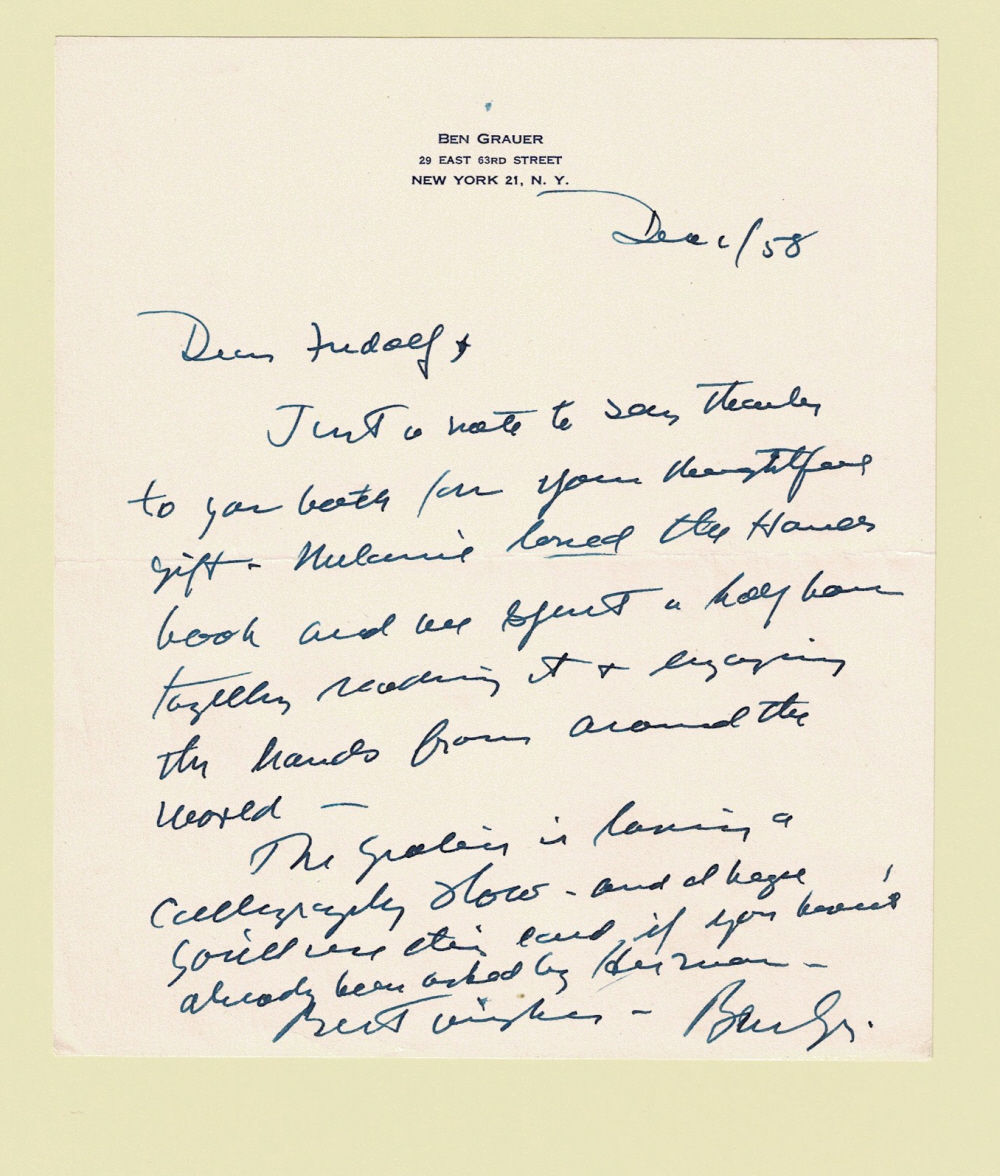 BEN GRAUER
29 EAST 63RD STREET
NEW YORK 21, N. Y.
Dec 1/58
Dear Fridolf +
Just a note to say thanks
to you both for your thoughtful
gift - Melanie loved the Hands
book and we spent a half hour
together reading it + enjoying
the hands from around the
world —
The Grolier is having a
calligraphy show - and I hope
you'll use this card, if you haven't
already been asked by Herman -
Best wishes - Ben Gr.